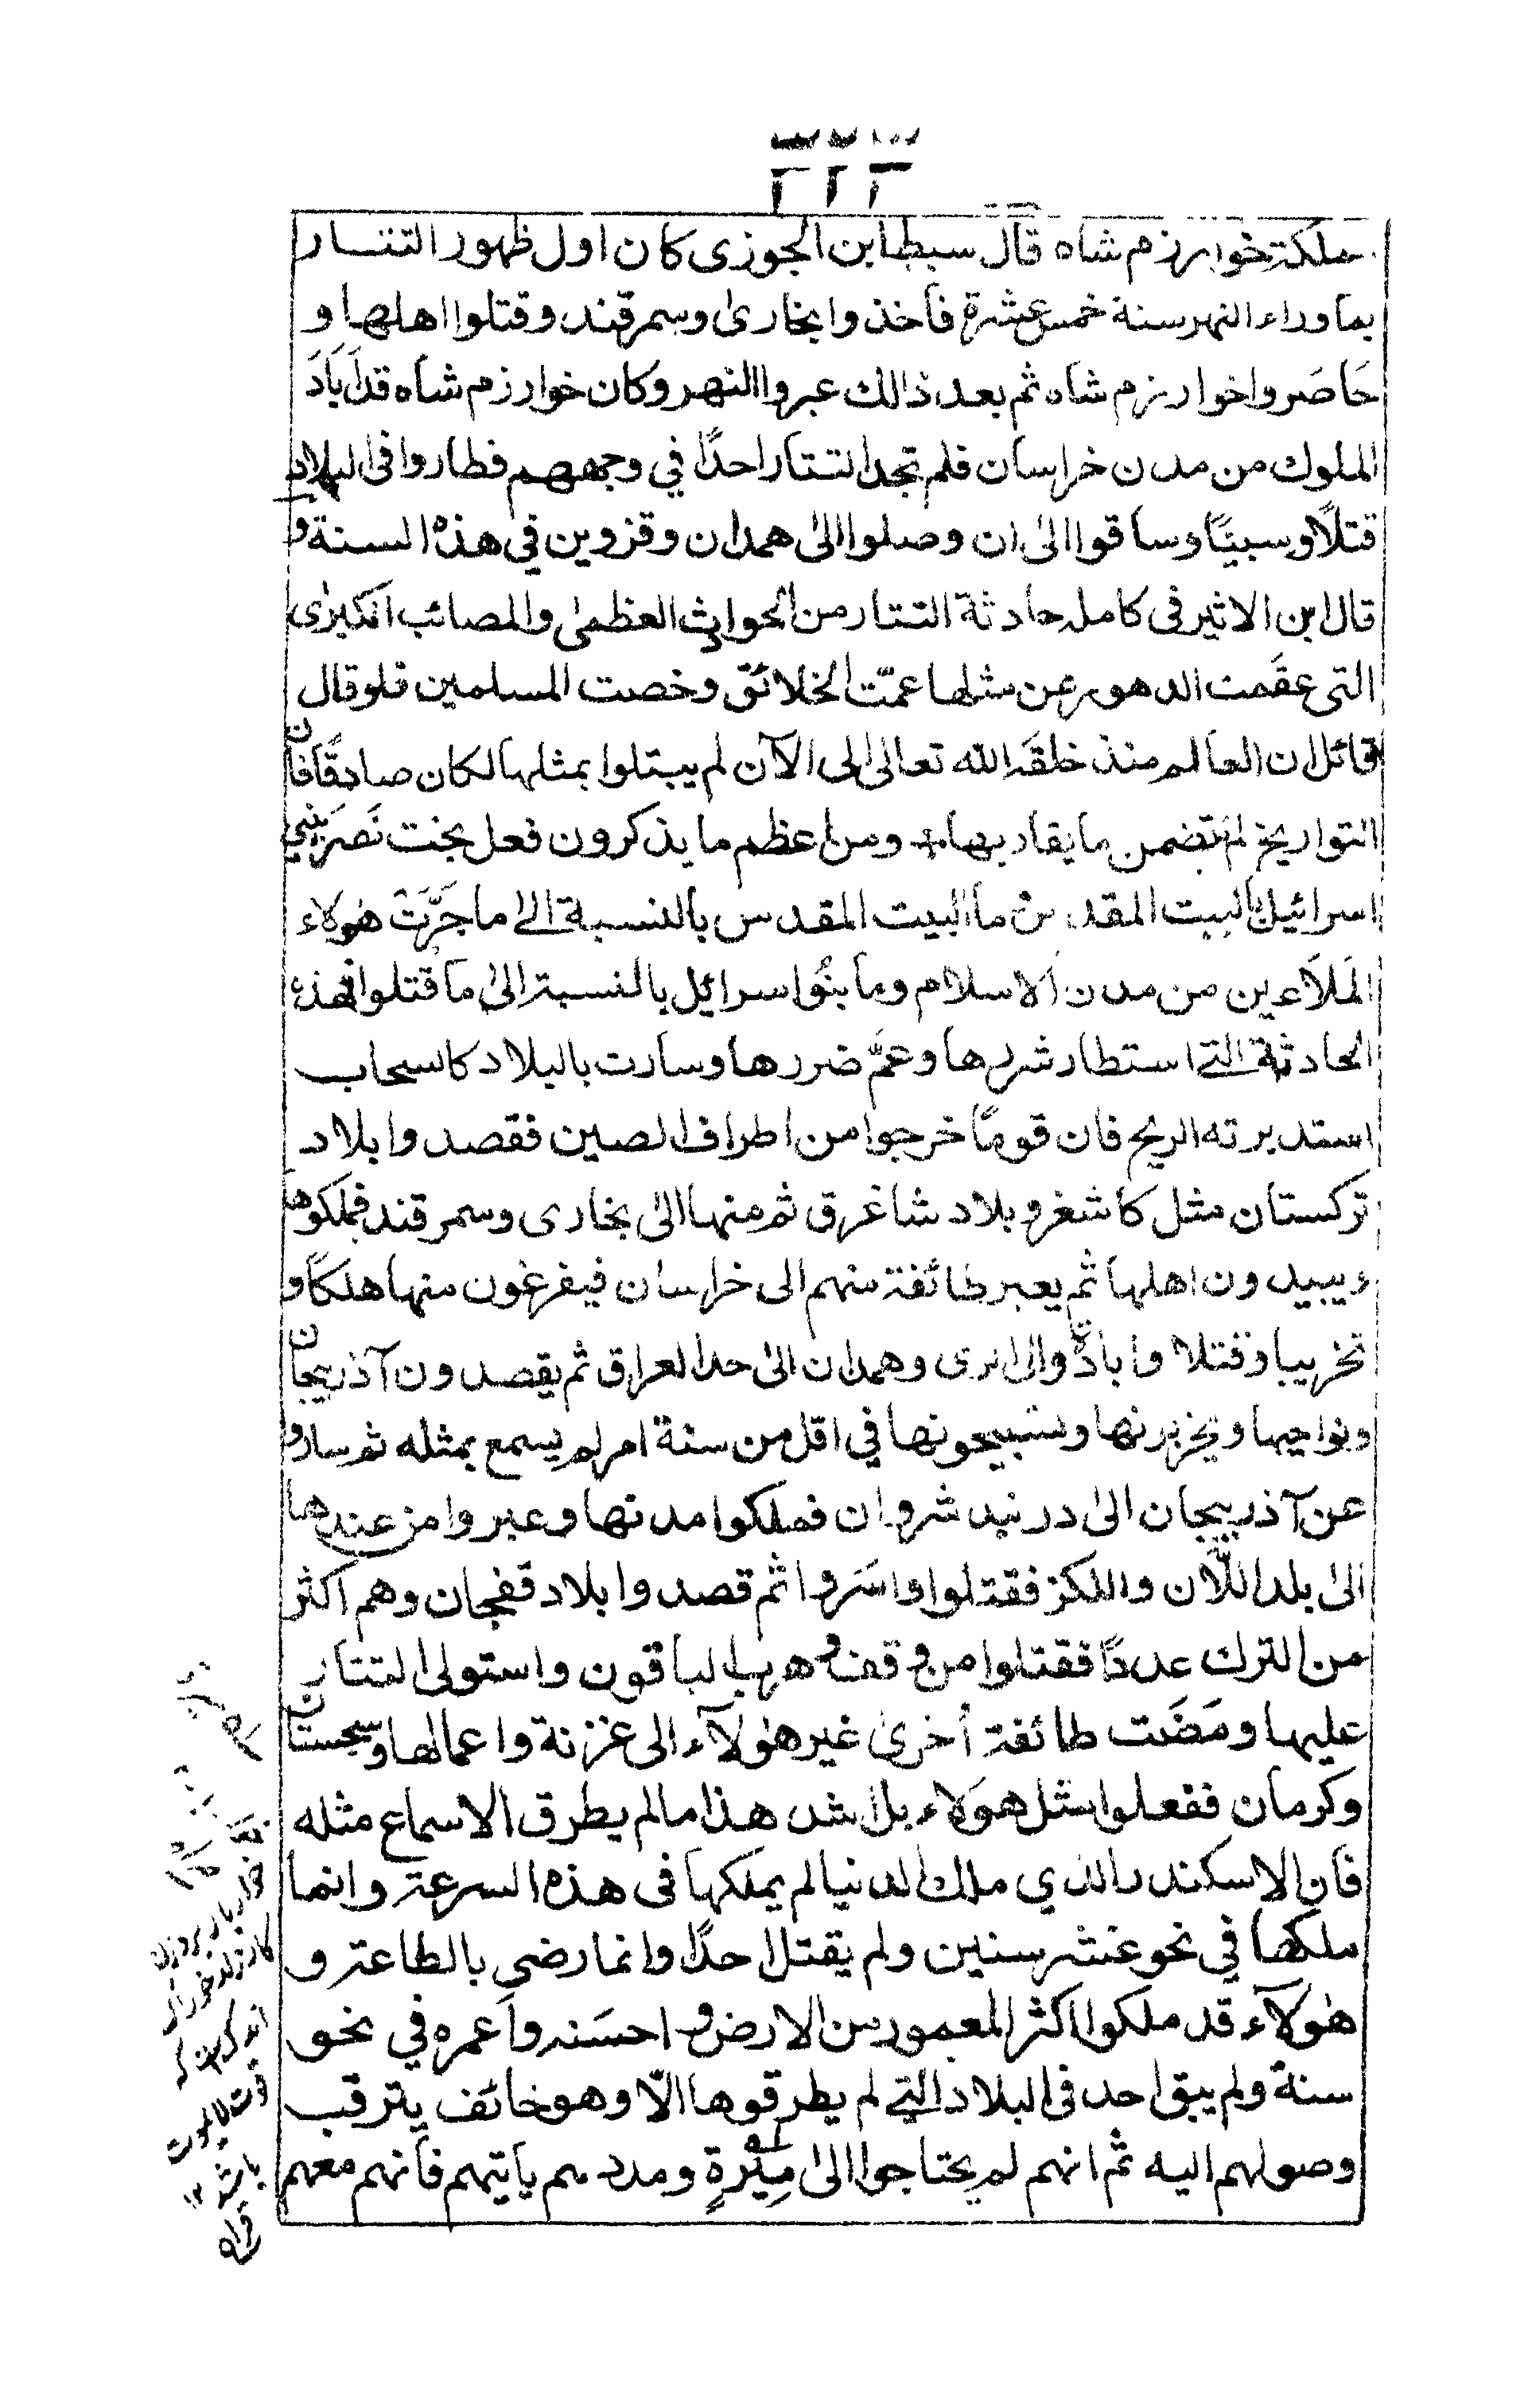 مملكة خوارزم شاه قال سبط ابن الجوزى كان اول ظهور التتار
بما وراء النهر سنة خمس عشرة فاخذوا بخارىٰ وسمرقند وقتلوا اهلها و
حَاصَروا خوارزم شاه ثم بعد ذالك عبروا النهر وكان خوارزم شاه قد اَبَادَ
الملوك من مدن خراسان فلم تجد التتار احدًا في وجههم فطاروا فى البلاد
قتلًا وسبيًا وساقوا الىٰ ان وصلوا الىٰ همدان وقزوين في هذه السنة و
قال ابن الاثير فى كامله حادثة التتار من الحوادث العظمىٰ والمصائب الكبرىٰ
التى عقَمت الدهور عن مثلها عمّت الخلائق وخصت المسلمين فلو قال
قائل ان العالم منذ خلقَه الله تعالىٰ الى الآن لم يبتلوا بمثلها لكان صادقًا فان
التواريخ لم تضمن ما يقاربها ومن اعظم ما يذكرون فعل بخت نَصَر ببنى
اسرائيل بالبيت المقدس وما البيت المقدس بالنسبة الىٰ ما خَرَّبَتْ هٰولاء
المَلَاعين من مدن الاسلام وما بنُوا اسرائيل بالنسبة الىٰ ما قُتلوا فهذه
الحادثة التى استطار شررها وعمَّ ضررها وسارت بالبلاد كالسحاب
استدبرته الريح فان قومًا خرجوا من اطراف الصين فقصدوا بلاد
تركستان مثل كاشغر وبلاد شاغرق ثم منها الىٰ بخارى وسمرقند فملكوها
ويبيدون اهلها ثم يعبر طائفة منهم الى خراسان فيفرغون منها هلكًا و
تخريبا وقتلا وابادة والى الرى وهمدان الىٰ حد العراق ثم يقصدون آذربيجان
ونواحيها ويخربونها ويستبيحونها في اقل من سنة امر لم يسمع بمثله ثم ساروا
عن آذربيجان الىٰ دربند شروان فملكوا مدنها وعبروا من عندها
الىٰ بلد اللّان واللكز فقتلوا واسَروا ثم قصدوا بلاد قفجان وهم اكثر
من الترك عددًا فقتلوا من وقف وهرب الباقون واستولى التتار
عليها ومَضَت طائفة أخرىٰ غير هٰولآء الى غزنة واعمالها وسجستان
وكرمان ففعلوا مثل هٰوَلاء بل اشد هذا ما لم يطرق الاسماع مثله
فان الاسكندر الذي ملك الدنيا لم يملكها فى هذه السرعة وانما
ملكها في نحو عشر سنين ولم يقتل احدًا وانما رضى بالطاعة و
هٰولآء قد ملكوا اكثر المعمور من الارض و احسَنه واَعمره في نحو
سنة ولم يبق احد فى البلاد التى لم يطرقوها الّا وهو خائف يترقب
وصولهم اليه ثم انهم لم يحتاجوا الىٰ مِيْرةٍ ومددهم ياتيهم فانهم معهم